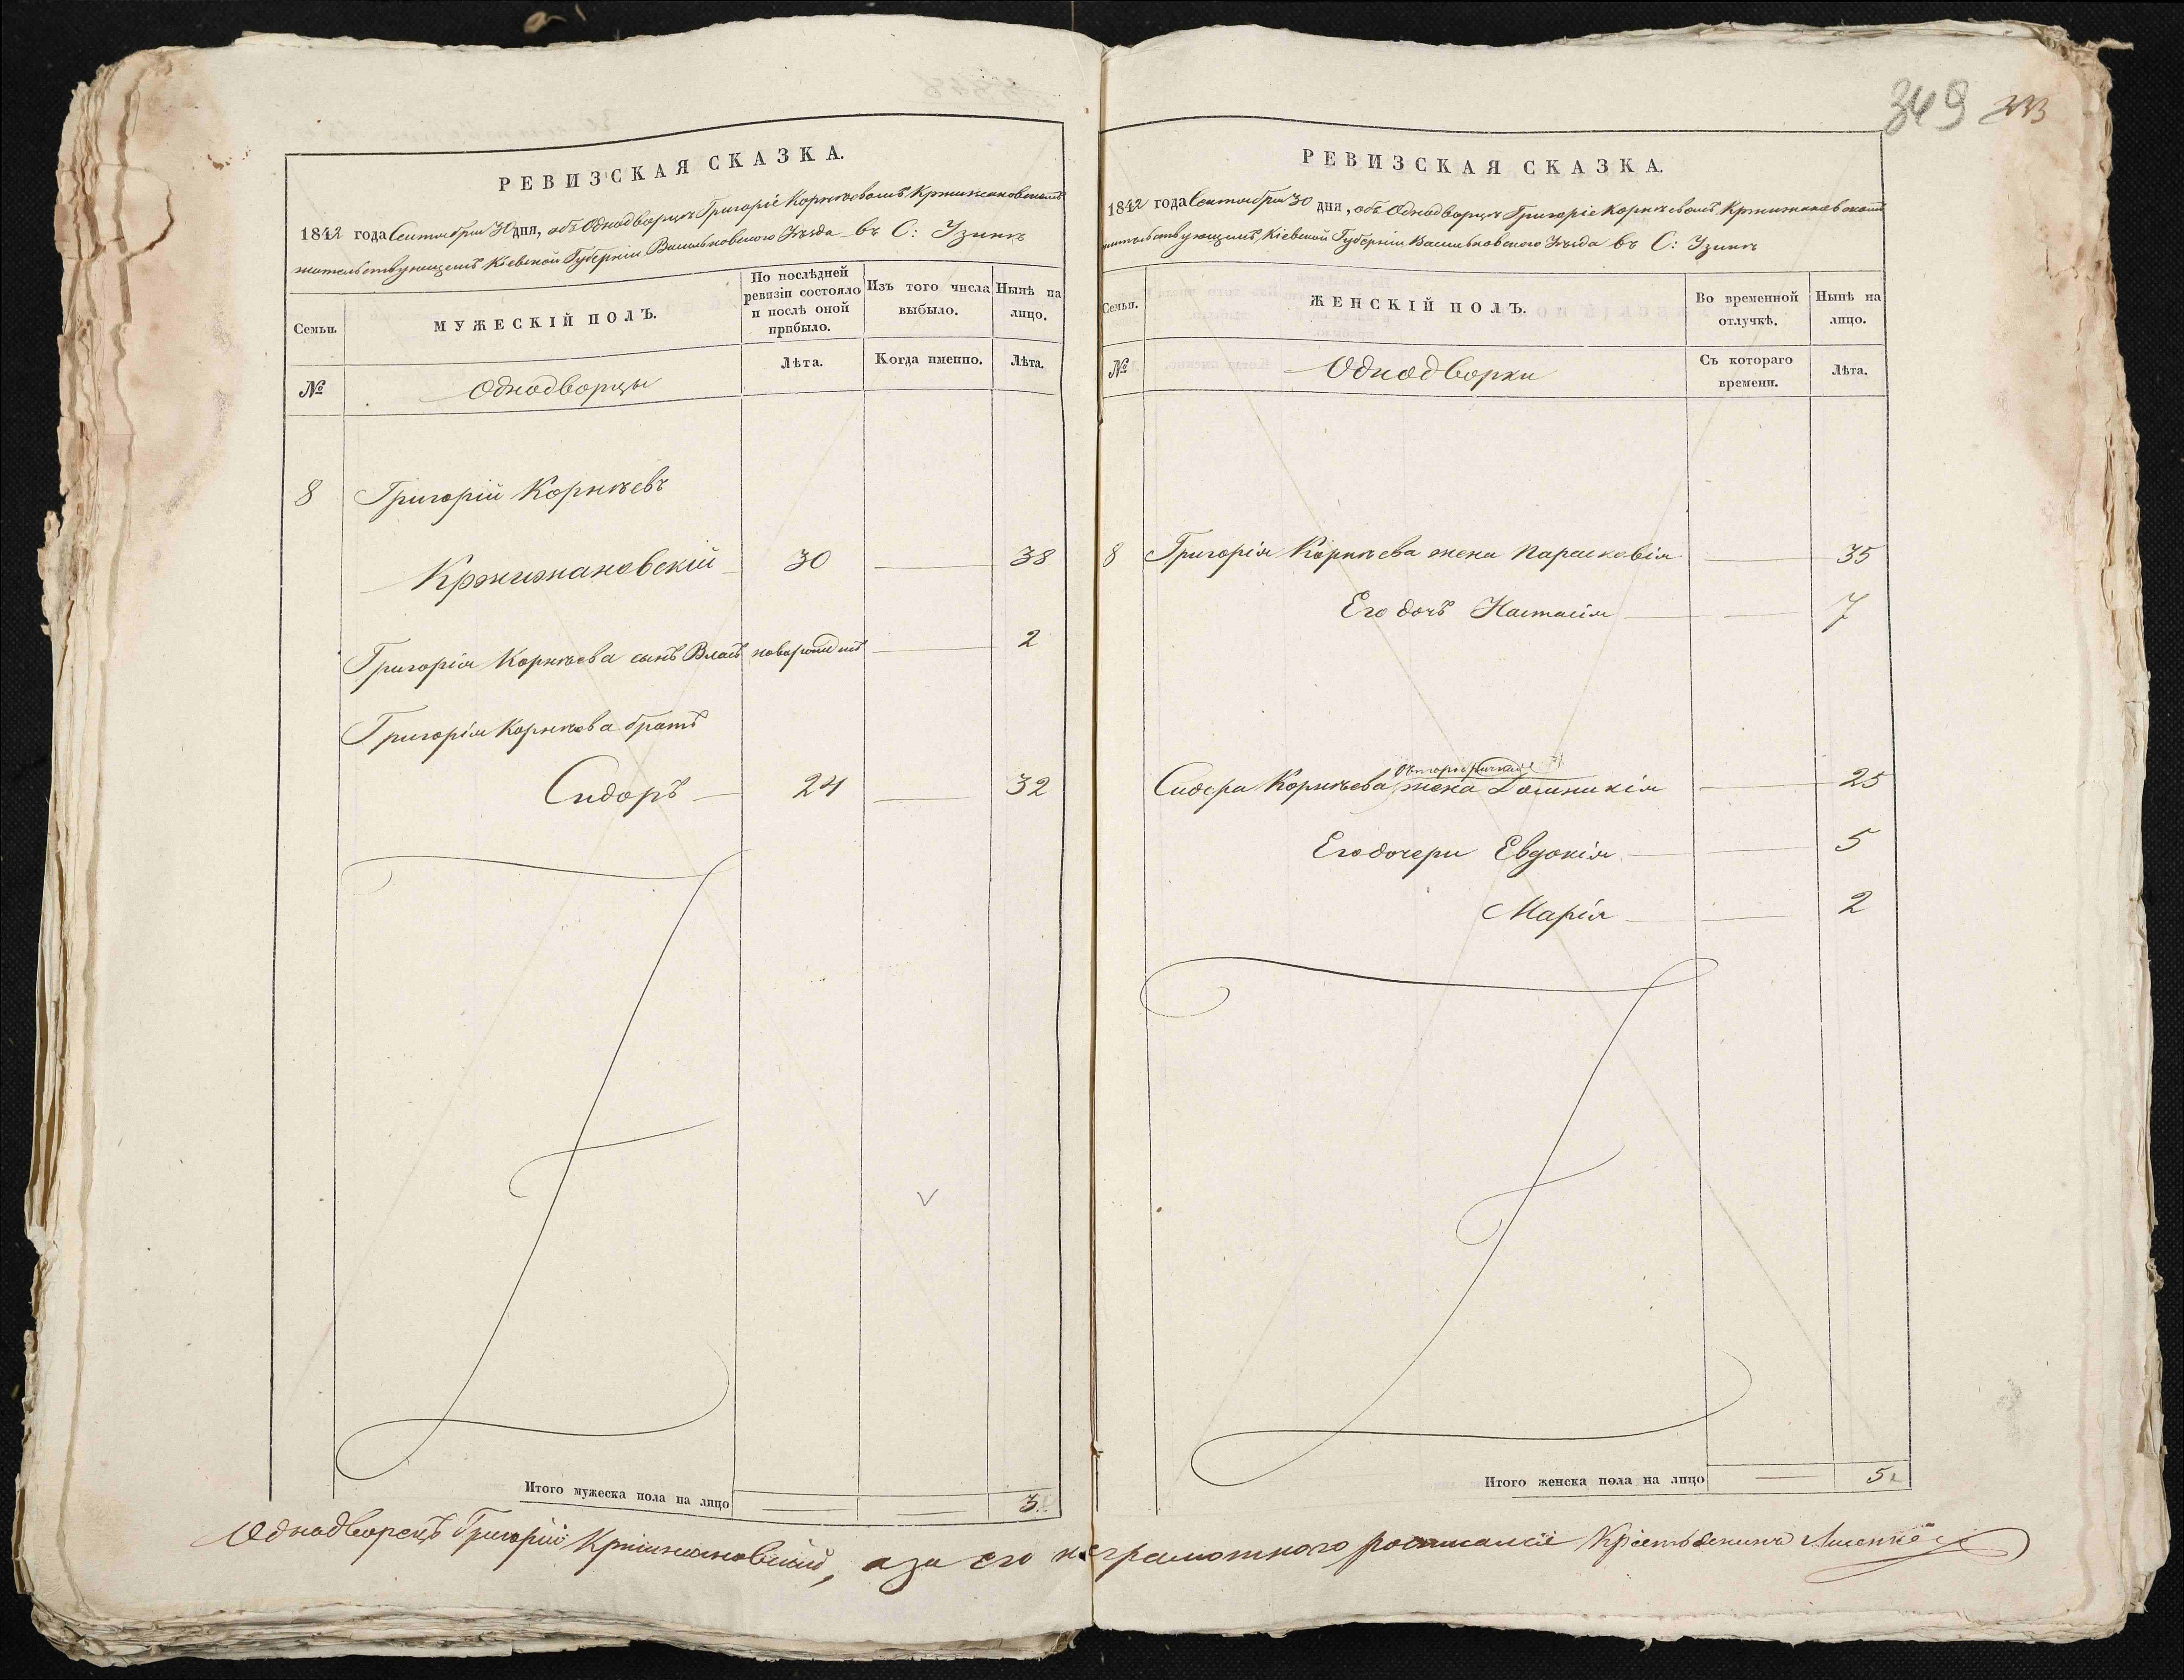 РЕВИЗСКАЯ СКАЗКА.
1842 года Сентября 30 дня, объ Однодворцѣ Григоріе Корнѣевомъ Кржижановскомъ
жительствующемъ Кіевской Губерніи Васильковскаго Уѣзда въ С: Узинѣ
Семьи.
МУЖЕСКІЙ ПОЛЪ.
По послѣдней
ревизіи состояло
и послѣ оной
прибыло.
Изъ того числа
выбыло.
Нынѣ на
лицо.
№
Однодворцы
Лѣта.
Когда именно.
Лѣта.
8 Григорій Корнѣевъ
Кржижановскій 30 38
Григорія Корнѣева сынъ Власъ новорожденъ 2
Григорія Корнѣева братъ
Сидоръ 24 32
Итого мужеска пола на лицо 3.
349
РЕВИЗСКАЯ СКАЗКА.
1842 года Сентября 30 дня, объ Однодворцѣ Григоріе Корнѣевомъ Кржижановскомъ
жительствующемъ Кіевской Губерніи Васильковскаго Уѣзда въ С: Узинѣ
Семьи.
ЖЕНСКІЙ ПОЛЪ.
Во временной
отлучкѣ.
Нынѣ на
лицо.
№
Однодворки
Съ котораго
времени.
Лѣта.
8 Григорія Корнѣева жена Парасковія 35
Его дочь Настасія 7
Сидора Корнѣева жена Домникія 25
Его дочери Евдокія 5
Марія 2
Итого женска пола на лицо 5
Однодворецъ Григорій Кржижановскій, а за его неграмотнаго росписался Крестьянинъ Лисенко